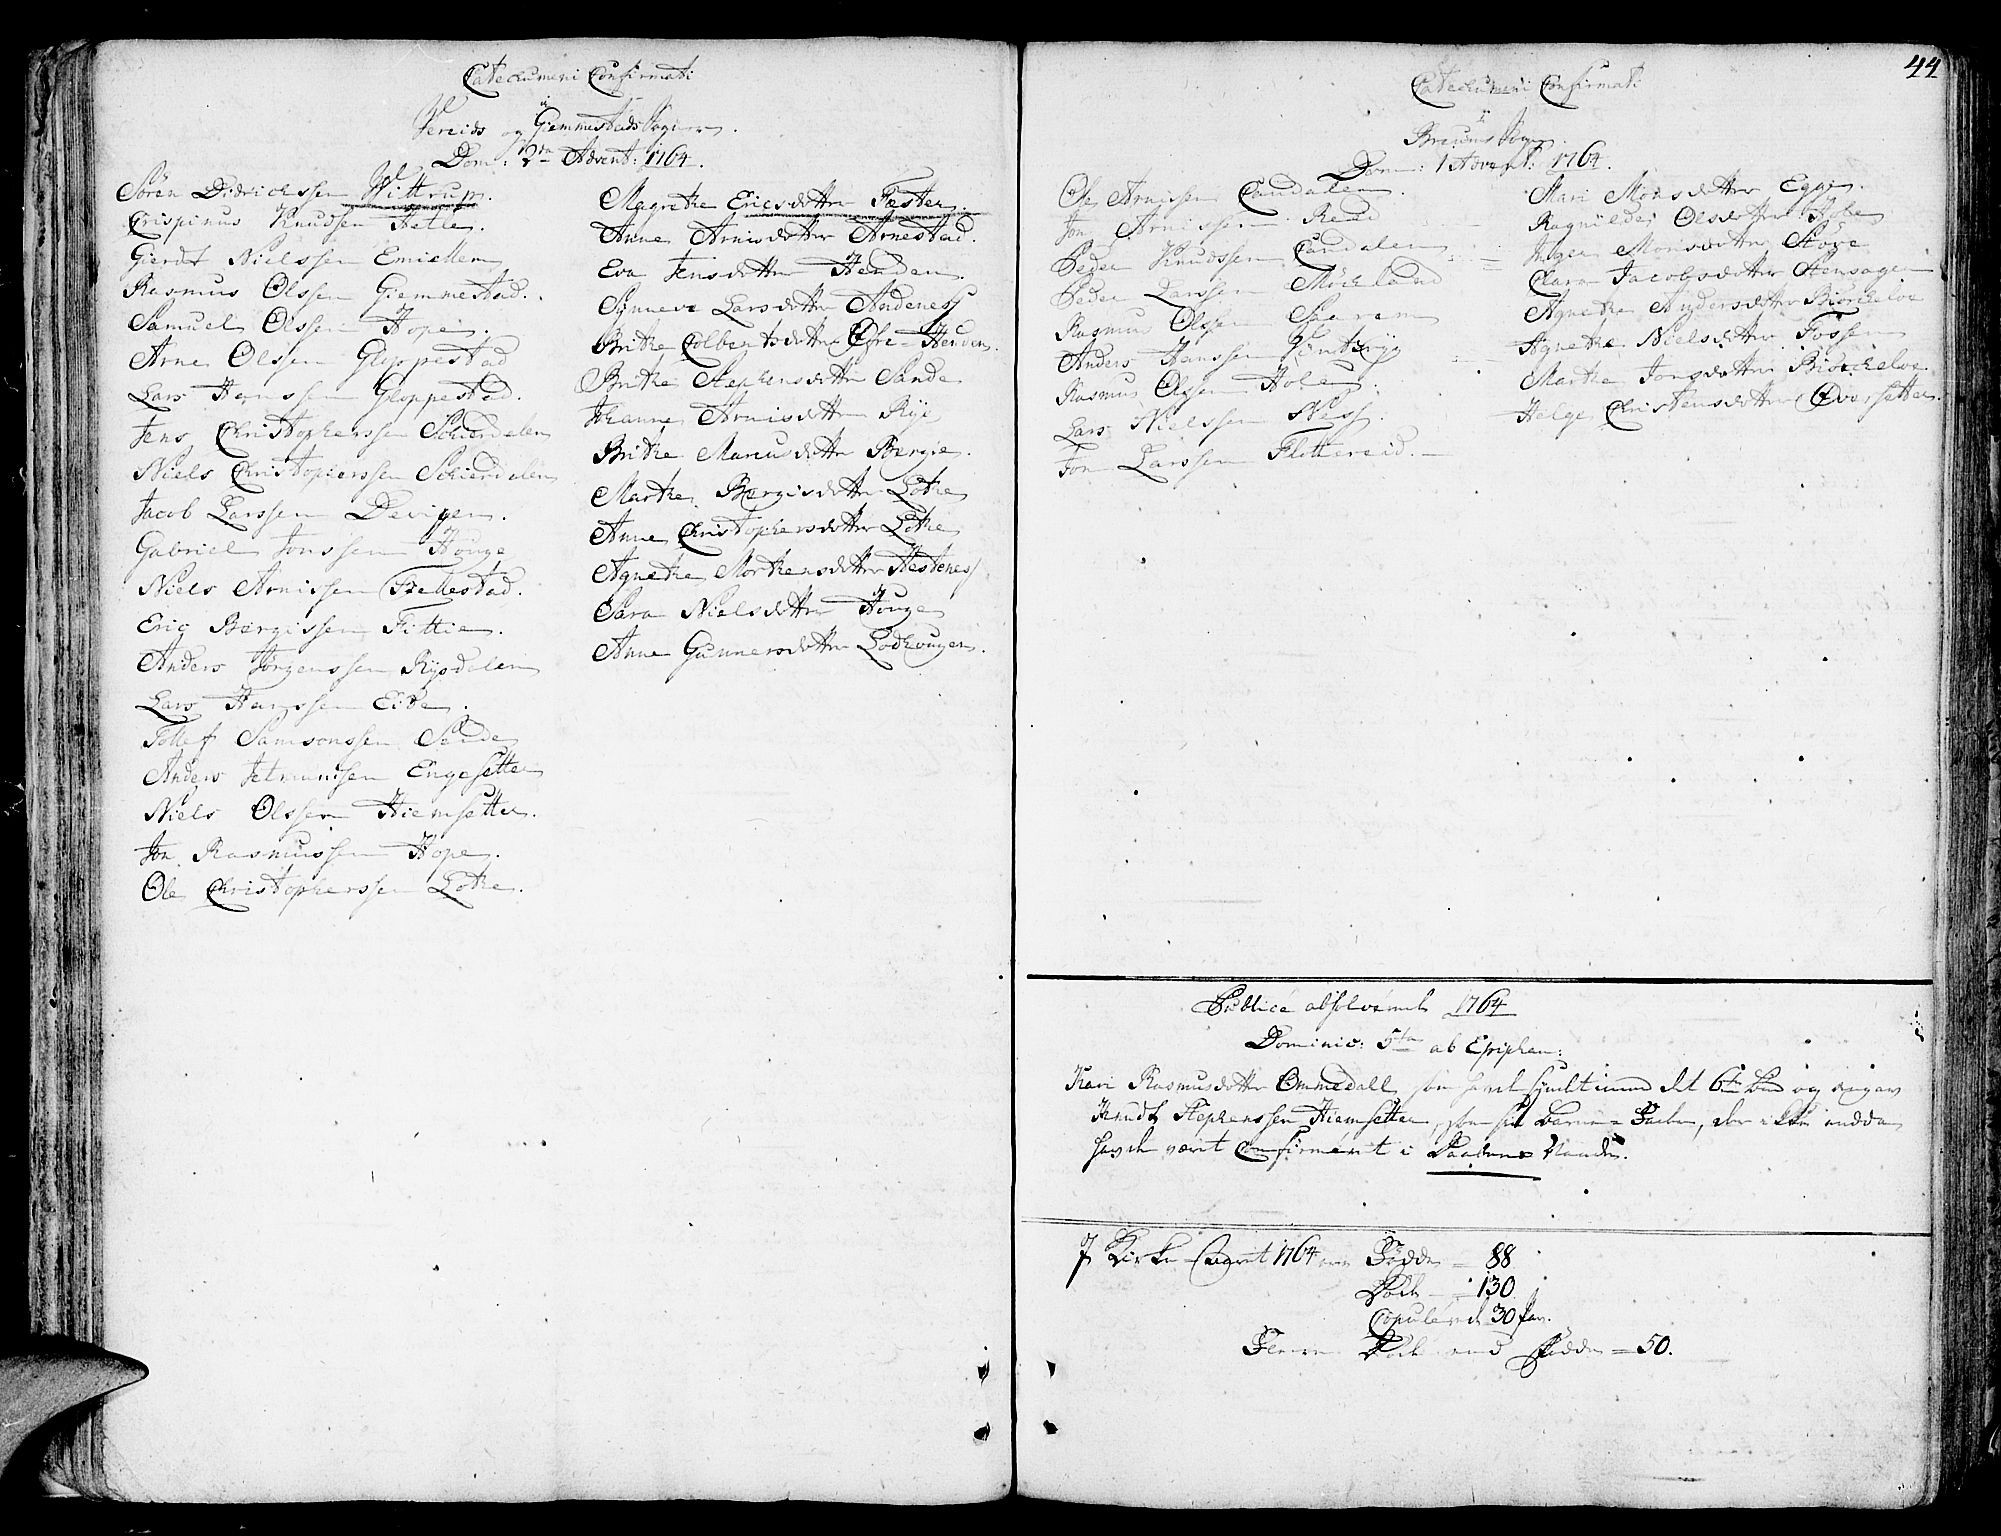 Catechumeni Confirmati
i
Vereids og Giemmestads Sogner.
Dom: 2da Advent: 1764.
Sören Didrichssen Wittrup.
Crispinus Knudsen Helle.
Gierdt Nielssen Emiellem
Rasmus Olssen Giemmestad.
Samuel Olssen Hope.
Arne Olssen Gloppestad
Lars Hanssen Gloppestad.
Jens Christophersen Schierdalen
Niels Christopherssen Schierdalen
Jacob Larssen Devigen.
Gabriel Jonssen Houge
Niels Arnissen Fiellestad.
Eric Børgissen Fittie.
Anders Jørgenssen Rysdalen
Lars Hanssen Eide.
Tollef Samsonssen Sande
Anders Jetmundsen Engesetter
Niels Olssen Hiemsetter.
Jon Rasmussen Hope.
Ole Christopherssen Lothe.
Magrethe Ericsdotter Fester.
Anne Arnisdotter Arnestad.
Eva Jensdotter Henden.
Synneve Larsdotter Andeness
Brithe Colbentsdotter Øfre-Henden.
Brithe Stephensdotter Sande
Johanne Arnisdotter Rye
Brithe Marcusdotter Bergie.
Marthe Børgisdotter Lothe
Anne Christophersdotter Lothe
Agnethe Morthensdotter Hestenes
Sara Nielsdotter Houge
Anne Gunnersdotter Lothevigen.
44
Catechumeni Confirmati
i
Breums Sogn
Dom: 1 Advent: 1764.
Ole Arnissen Candalen.
Jon Arnissen Reed
Peder Knudssen Candalen
Peder Larssen Möchland
Rasmus Olssen Sierem
Anders Hanssen
Rasmus Olssen Hole.
Lars Nielssen Ness.
Jon Larssen Flottereid.
Mari Monsdotter Egge.
Ragnilde Olsdotter Hole
Inger Monsdotter Støve
Clara Jacobsdotter Stensager
Agnethe Andersdotter Biörcheloe
Agnethe Nielsdotter Fossem
Marthe Jonsdotter Biörcheloe
Helge Christensdotter Ovorsetter.
Publicé absolverede 1764
Dominic: 5ta ab Epiphan:
Kari Rasmusdotter Ommedall, som havde syndet imod det 6te Bud og angav
Knudt Stephenssen Hiemsetter, som sin Barne-Fader, der ikke endda
havde været confirmeret i Daabens Naade.
I Kirke-Aaret 1764 ere Födde = 88
Döde = 130
Copulerede 30 Par.
Flere Döde end Födde = 50.